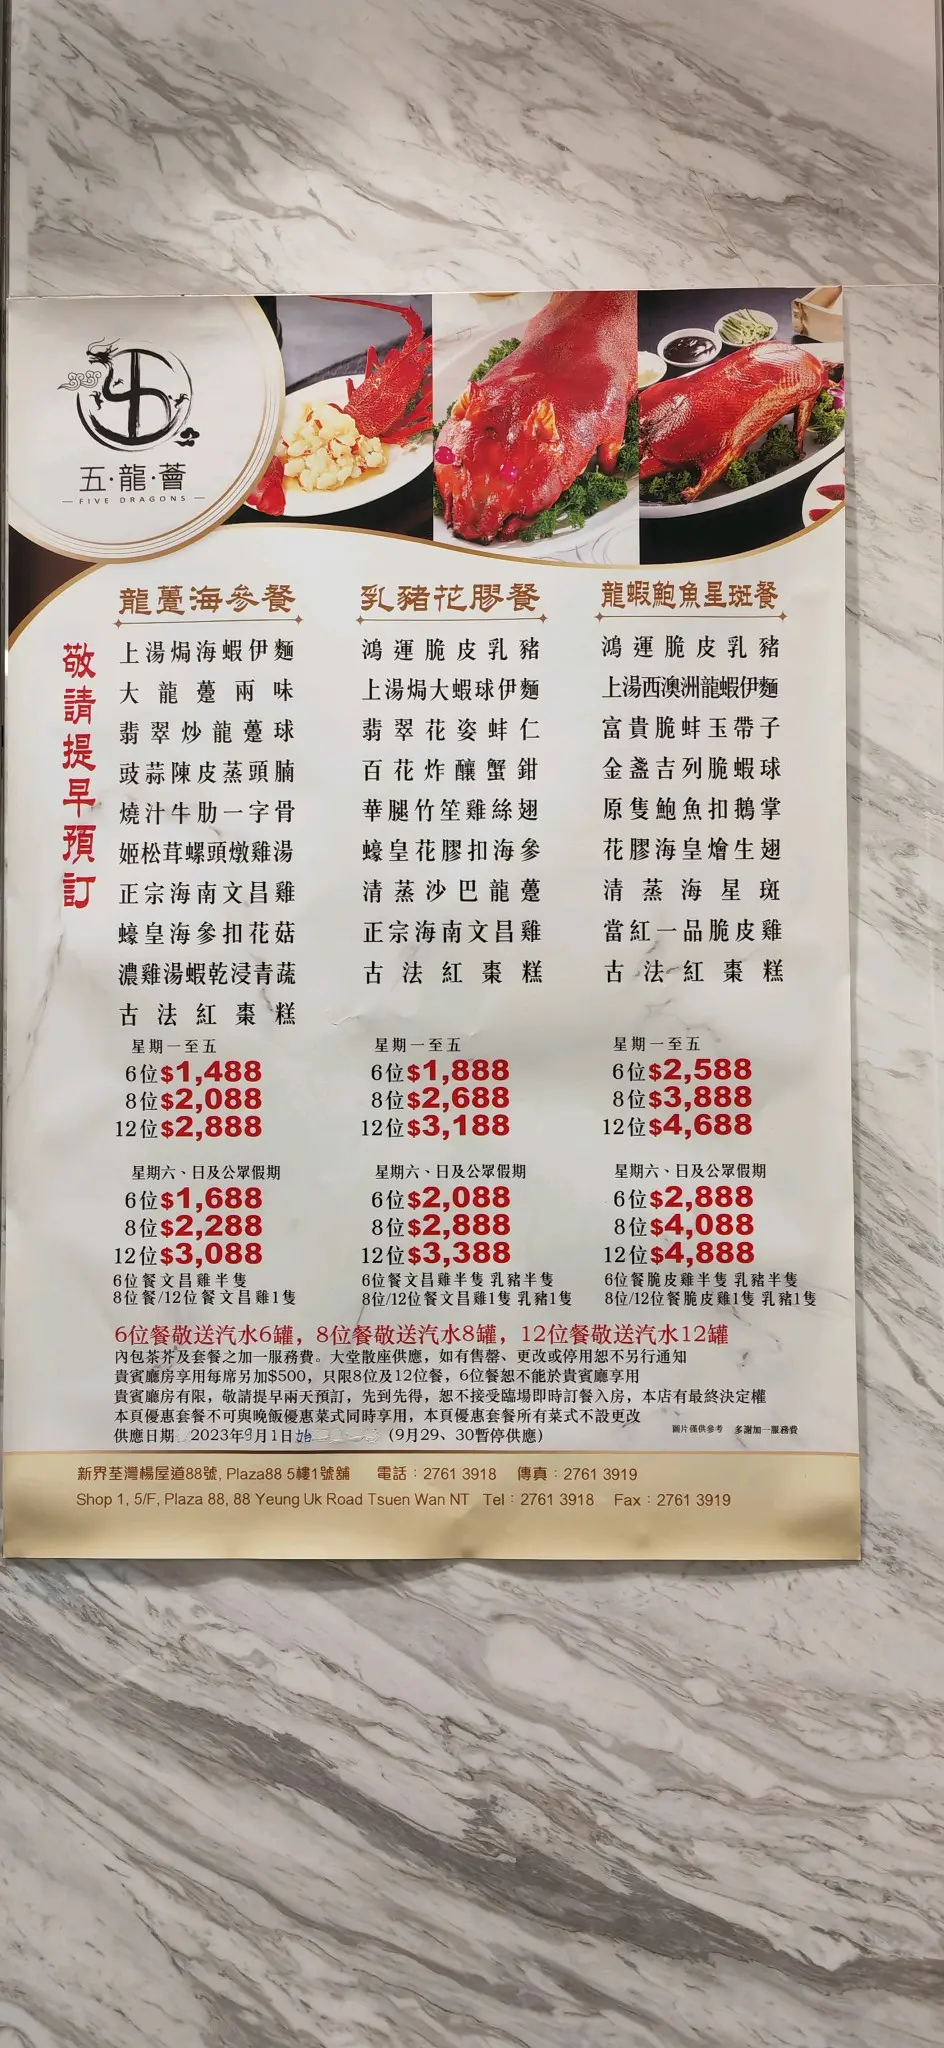 五·龍·薈
FIVE DRAGONS
敬請提早預訂
龍躉海參餐
上湯焗海蝦伊麵
大龍躉兩味
翡翠炒龍躉球
豉蒜陳皮蒸頭腩
燒汁牛肋一字骨
姬松茸螺頭燉雞湯
正宗海南文昌雞
蠔皇海參扣花菇
濃雞湯蝦乾浸青蔬
古法紅棗糕
星期一至五
6位$1,488
8位$2,088
12位$2,888
星期六、日及公眾假期
6位$1,688
8位$2,288
12位$3,088
6位餐文昌雞半隻
8位餐/12位餐文昌雞1隻
乳豬花膠餐
鴻運脆皮乳豬
上湯焗大蝦球伊麵
翡翠花姿蚌仁
百花炸釀蟹鉗
華腿竹笙雞絲翅
蠔皇花膠扣海參
清蒸沙巴龍躉
正宗海南文昌雞
古法紅棗糕
星期一至五
6位$1,888
8位$2,688
12位$3,188
星期六、日及公眾假期
6位$2,088
8位$2,888
12位$3,388
6位餐文昌雞半隻 乳豬半隻
8位/12位餐文昌雞1隻 乳豬1隻
龍蝦鮑魚星斑餐
鴻運脆皮乳豬
上湯西澳洲龍蝦伊麵
富貴脆蚌玉帶子
金盞吉列脆蝦球
原隻鮑魚扣鵝掌
花膠海皇燴生翅
清蒸海星斑
當紅一品脆皮雞
古法紅棗糕
星期一至五
6位$2,588
8位$3,888
12位$4,688
星期六、日及公眾假期
6位$2,888
8位$4,088
12位$4,888
6位餐脆皮雞半隻 乳豬半隻
8位/12位餐脆皮雞1隻 乳豬1隻
6位餐敬送汽水6罐，8位餐敬送汽水8罐，12位餐敬送汽水12罐
內包茶芥及套餐之加一服務費。大堂散座供應，如有售罄、更改或停用恕不另行通知
貴賓廳房享用每席另加$500，只限8位及12位餐，6位餐恕不能於貴賓廳享用
貴賓廳房有限，敬請提早兩天預訂，先到先得，恕不接受臨場即時訂餐入房，本店有最終決定權
本頁優惠套餐不可與晚飯優惠菜式同時享用，本頁優惠套餐所有菜式不設更改
供應日期 2023年9月1日始 (9月29、30暫停供應)
圖片僅供參考 多謝加一服務費
新界荃灣楊屋道88號, Plaza88 5樓1號舖 電話：2761 3918 傳真：2761 3919
Shop 1, 5/F, Plaza 88, 88 Yeung Uk Road Tsuen Wan NT Tel：2761 3918 Fax：2761 3919